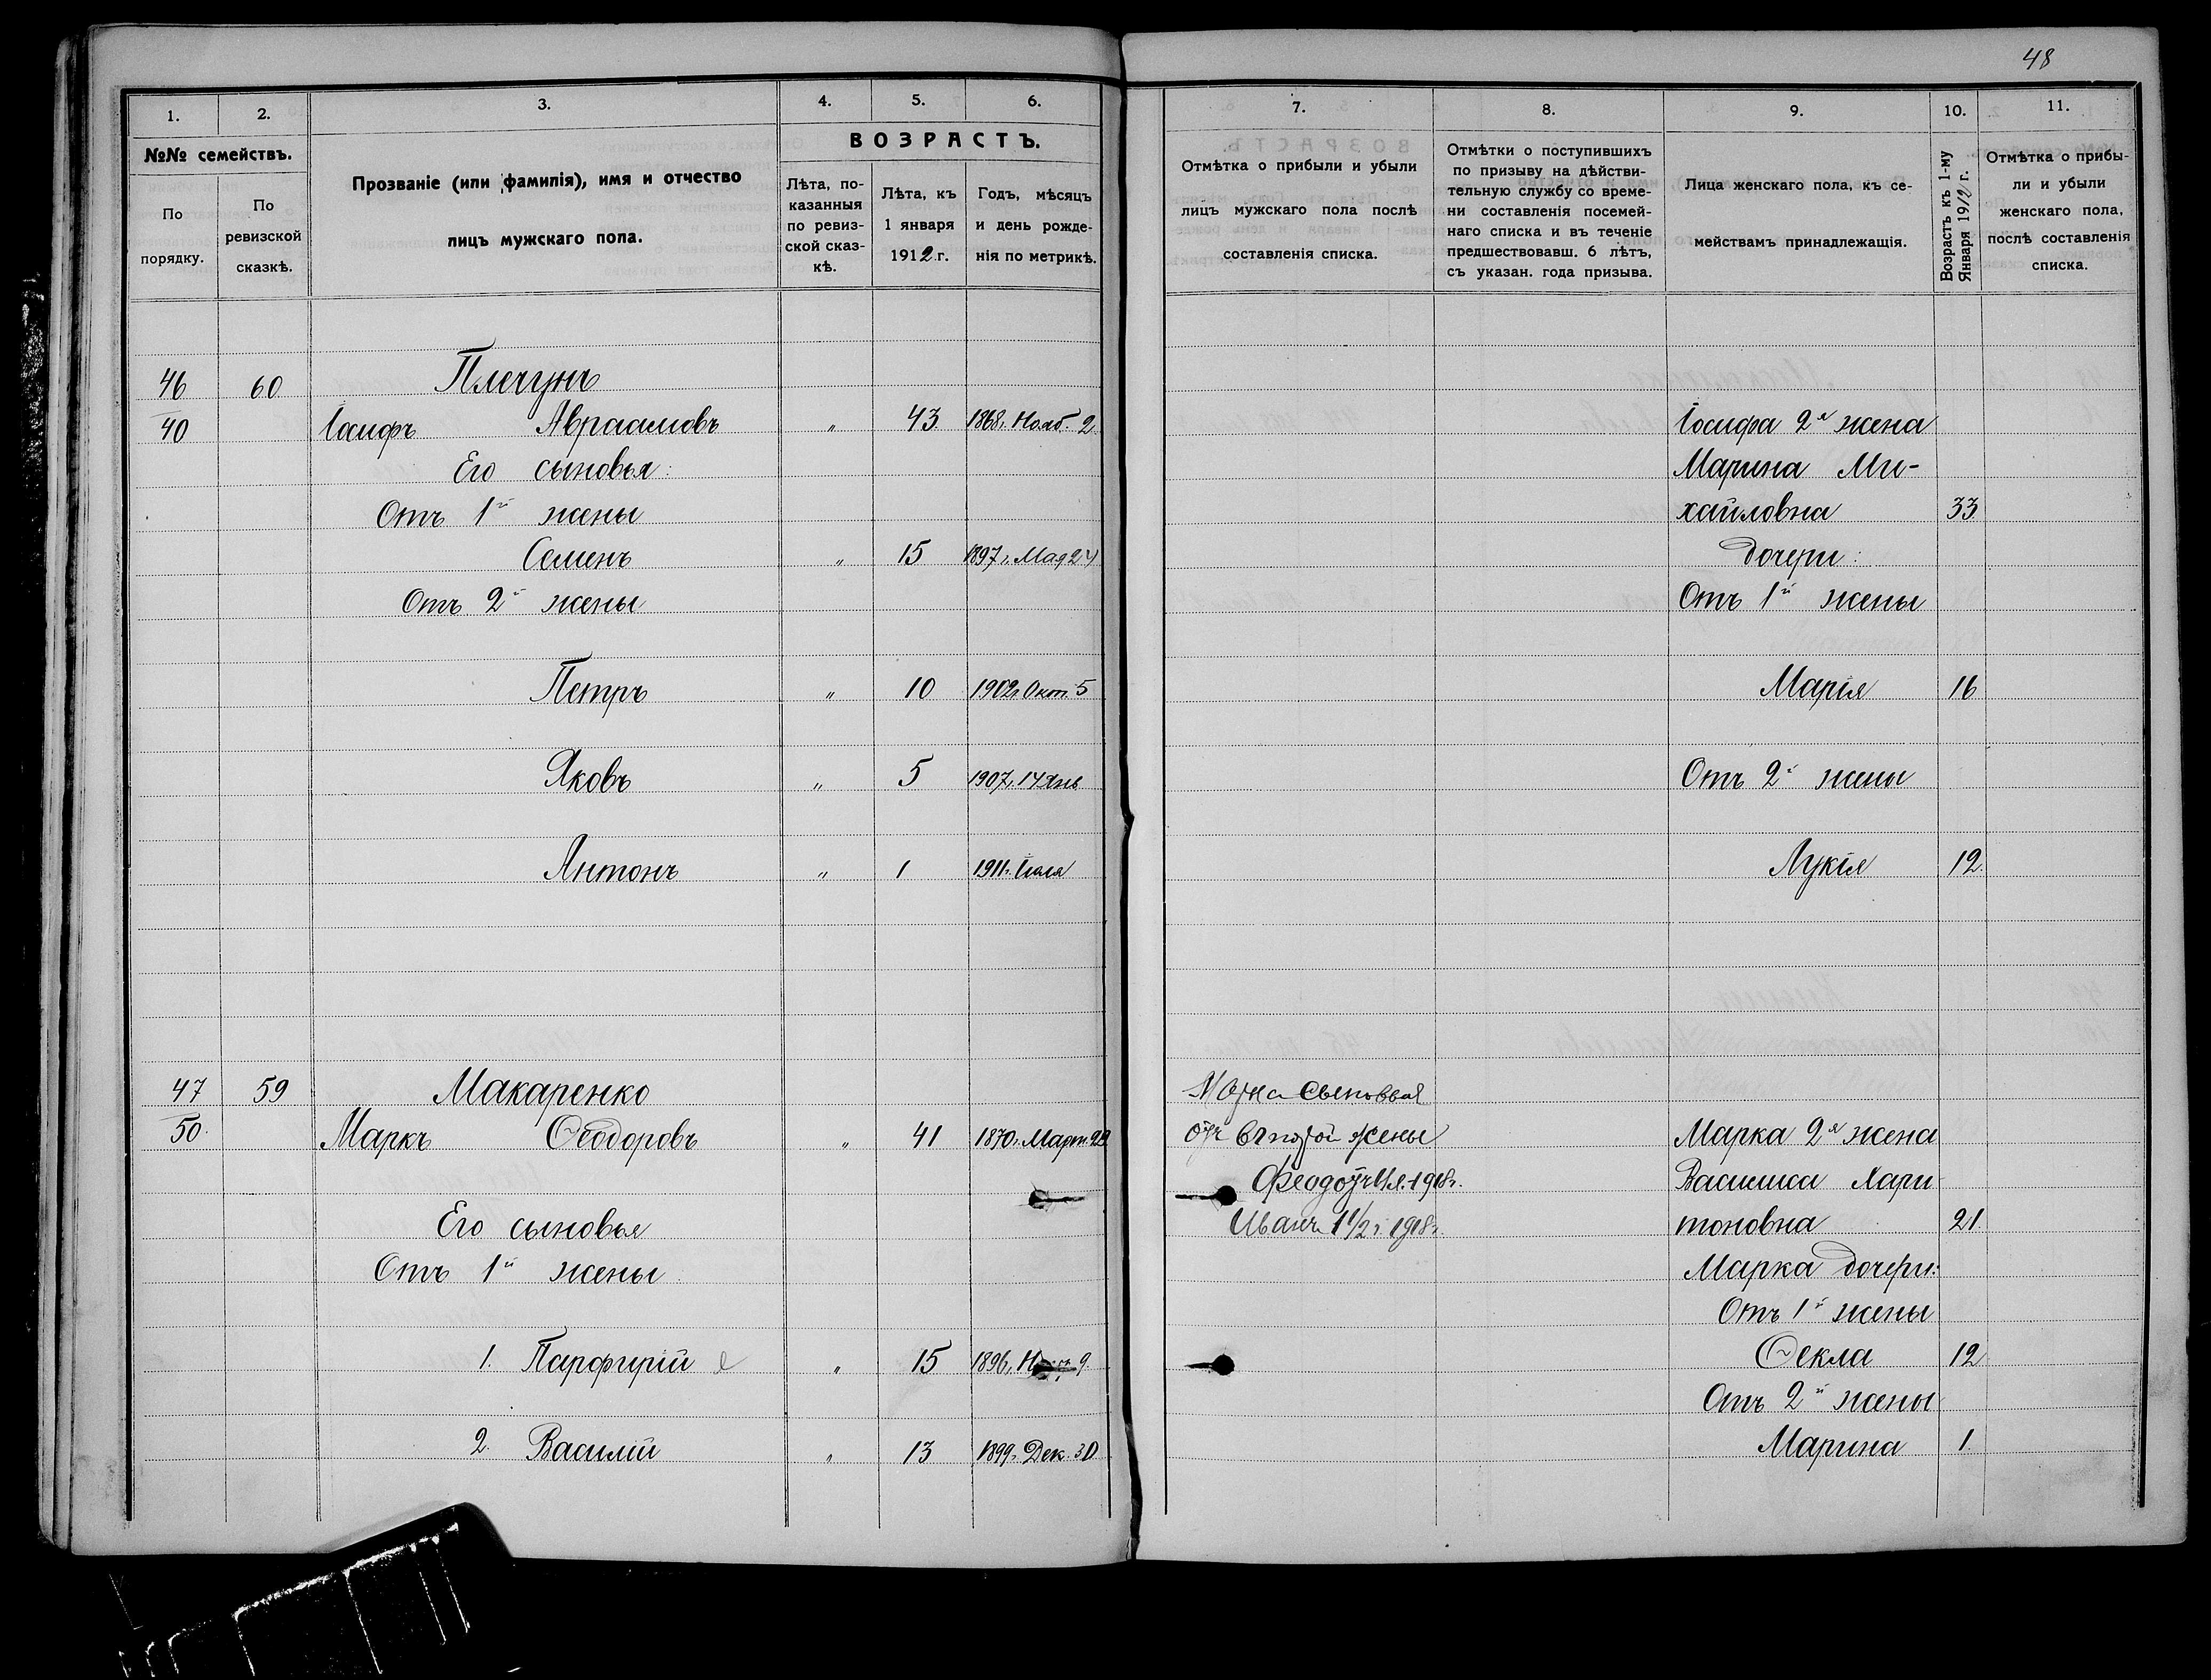 48
1. 2. 3. 4. 5. 6.
№№ семействъ.
По порядку.
По ревизской сказкѣ.
Прозваніе (или фамилія), имя и отчество
лицъ мужскаго пола.
ВОЗРАСТЪ.
Лѣта, по-
казанныя
по ревиз-
ской сказ-
кѣ.
Лѣта, къ
1 января
1912 г.
Годъ, мѣсяцъ
и день рожде-
нія по метрикѣ.
46 60 Плечунъ
40 Іосифъ Авраамовъ " 43 1868 г. Нояб. 2
Его сыновья:
Отъ 1й жены
Семенъ " 15 1897 г. Мая 24
Отъ 2й жены
Петръ " 10 1902 г. Окт. 5
Яковъ " 5 1907 г. 14 Янв
Антонъ " 1 1911 г.
47 59 Макаренко
50 Маркъ Ѳеодоровъ " 41 1870 г. Март.
Его сыновья
Отъ 1й жены
1. Парфирій " 15 1896 г. 9
2. Василій " 13 1899 г. Дек. 30
7. 8. 9. 10. 11.
Отмѣтка о прибыли и убыли
лицъ мужскаго пола послѣ
составленія списка.
Отмѣтки о поступившихъ
по призыву на дѣйстви-
тельную службу со време-
ни составленія посемей-
наго списка и въ теченіе
предшествовавш. 6 лѣтъ,
съ указан. года призыва.
Лица женскаго пола, къ се-
мействамъ принадлежащія.
Возрастъ къ 1-му
Января 1912 г.
Отмѣтка о прибы-
ли и убыли
женскаго пола,
послѣ составленія
списка.
Іосифа 2я жена
Марина Ми-
хайловна 33
дочери:
Отъ 1й жены
Марія 16
Отъ 2й жены
Лукія 12
сыновья
отъ второй жены Марка 2я жена
1918 г. Василиса Хари
Иванъ 1 1/2 г. 1918 г. тоновна 21
Марка дочери:
Отъ 1й жены
Ѳекла 12
Отъ 2й жены
Марина 1